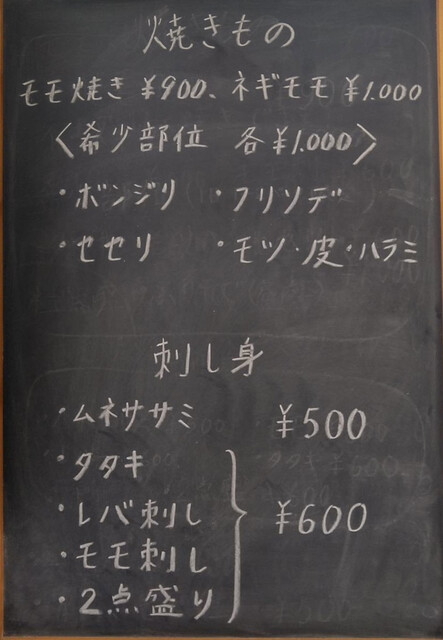 焼きもの
モモ焼き ¥900、ネギモモ ¥1.000
〈希少部位 各¥1.000〉
・ボンジリ ・フリソデ
・セセリ ・モツ・皮・ハラミ
刺し身
・ムネササミ ¥500
・タタキ
・レバ刺し ¥600
・モモ刺し
・2点盛り